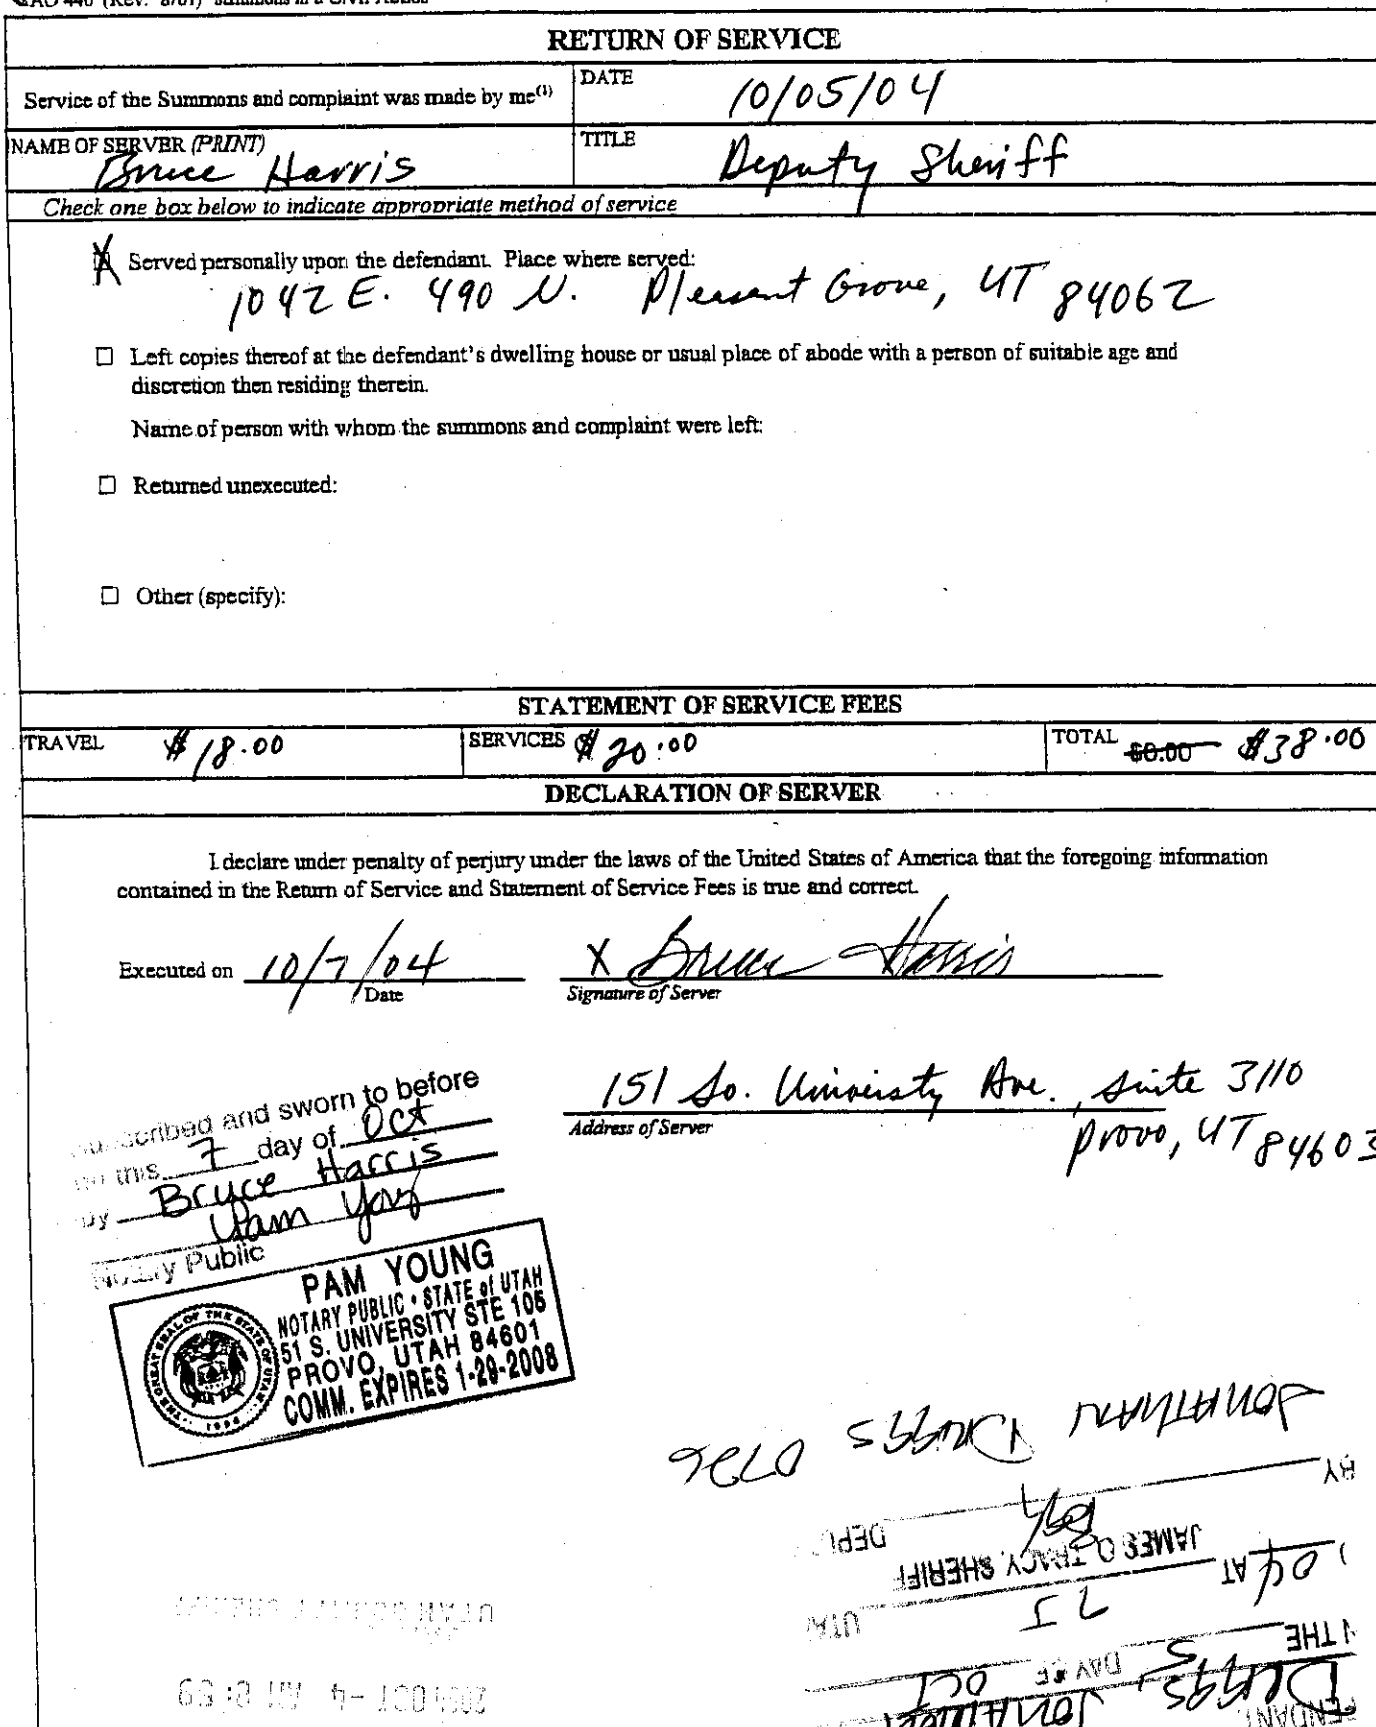 AO 440 (Rev. 8/01) Summons in a Civil Action
RETURN OF SERVICE
Service of the Summons and complaint was made by me(1)
DATE
10/05/04
NAME OF SERVER (PRINT)
Bruce Harris
TITLE
Deputy Sheriff
Check one box below to indicate appropriate method of service
X Served personally upon the defendant. Place where served:
1042 E. 490 N. Pleasant Grove, UT 84062
☐ Left copies thereof at the defendant's dwelling house or usual place of abode with a person of suitable age and
discretion then residing therein.
Name of person with whom the summons and complaint were left:
☐ Returned unexecuted:
☐ Other (specify):
STATEMENT OF SERVICE FEES
TRAVEL $18.00
SERVICES $20.00
TOTAL $0.00 $38.00
DECLARATION OF SERVER
I declare under penalty of perjury under the laws of the United States of America that the foregoing information
contained in the Return of Service and Statement of Service Fees is true and correct.
Executed on 10/7/04
Date
X Bruce Harris
Signature of Server
151 So. University Ave., Suite 3110
Provo, UT 84603
Address of Server
Subscribed and sworn to before
this 7 day of Oct
by Bruce Harris
Pam Young
Notary Public
PAM YOUNG
NOTARY PUBLIC • STATE of UTAH
51 S. UNIVERSITY STE 105
PROVO, UTAH 84601
COMM. EXPIRES 1-29-2008
THE GREAT SEAL OF THE STATE OF UTAH
1896
JONATHAN DRIGGS 0726
BY
DEPU
JAMES O. TRACY, SHERIFF
04 AT
UTA
THE 5 DAY OF OCT
DRIGGS, JONATHAN
UTAH COUNTY SHERIFF
2004 OCT -4 AM 8: